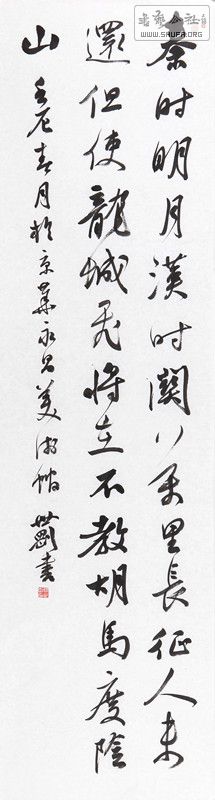 書法公社
WWW.SHUFA.ORG
秦时明月漢时關萬里長征人未
還但使龍城飛將在不教胡馬度陰
山 壬辰春月於京華永昌美術館 書